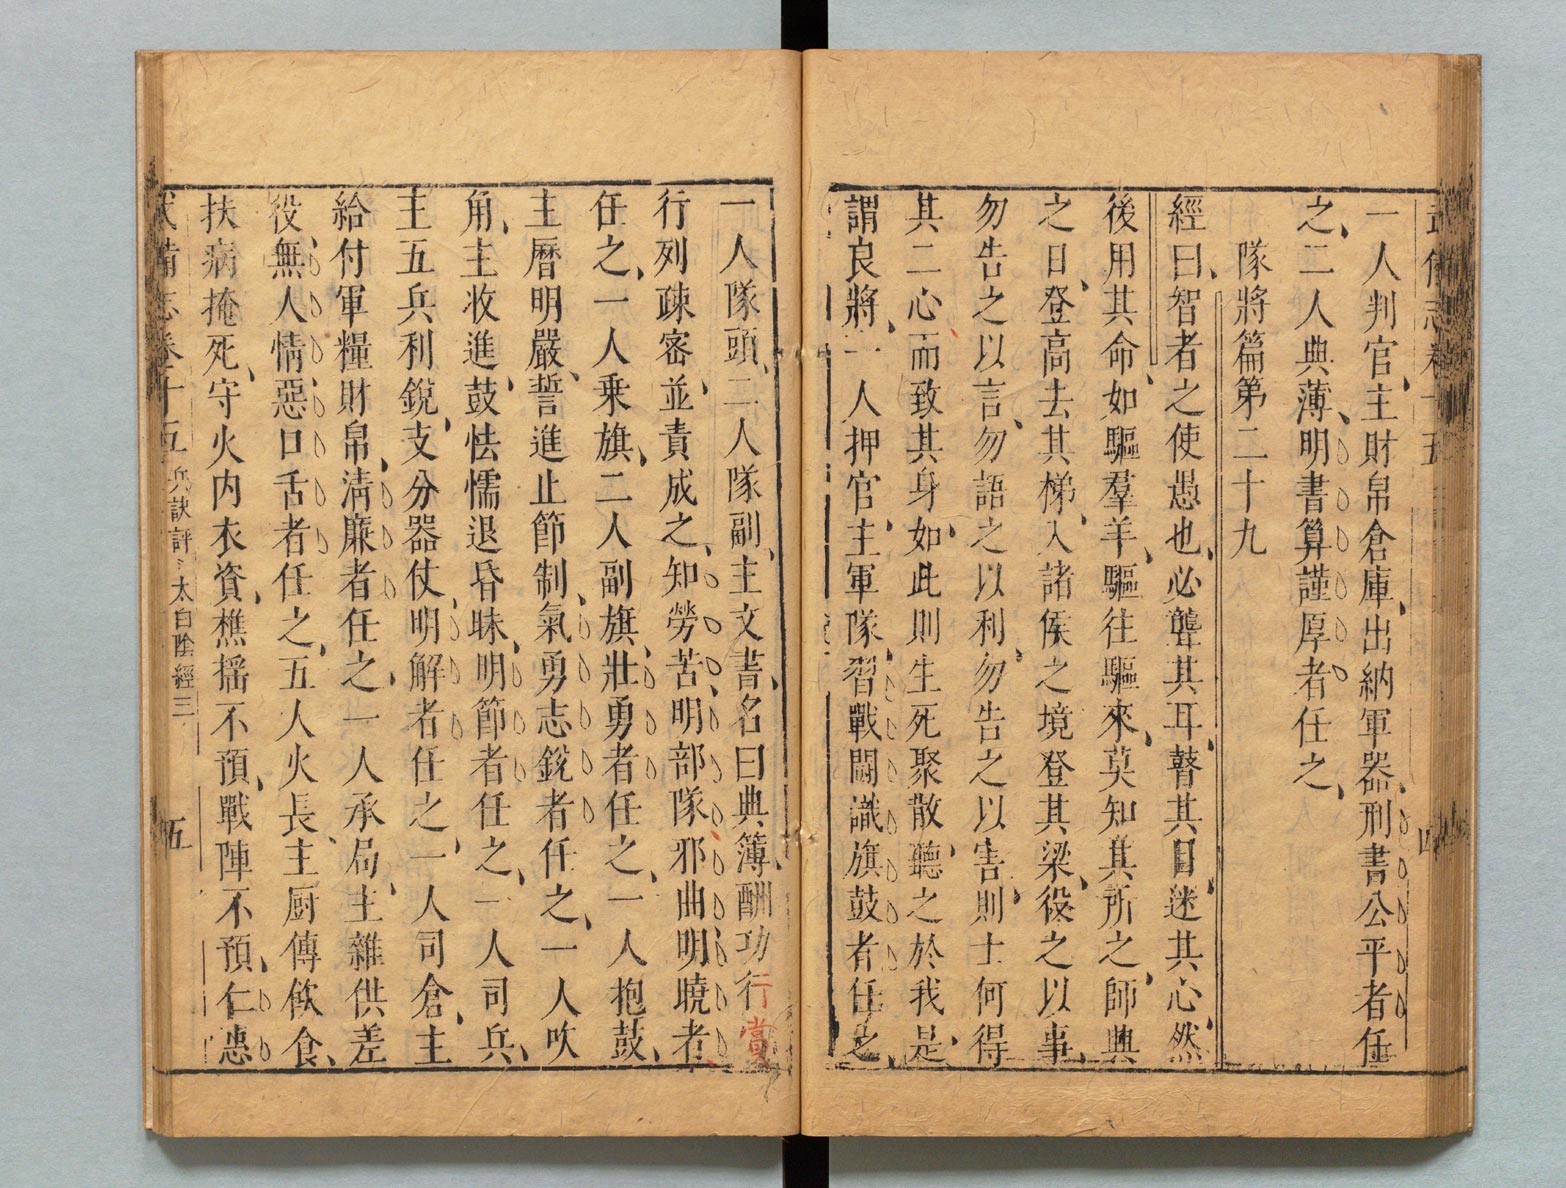 一人判官、主財帛倉庫、出納軍器、刑書公平者任
之、二人典薄、明書算謹厚者任之、
隊將篇第二十九
經曰、智者之使愚也、必聾其耳、瞽其目、迷其心、然
後用其命、如驅羣羊、驅往驅來、莫知其所之、師與
之日、登高去其梯、入諸侯之境、登其梁、役之以事、
勿告之以言、勿語之以利、勿告之以害、則士何得
其二心而致其身、如此則生死聚散、聽之於我、是
謂良將、一人押官、主軍隊、習戰鬪識旗鼓者任之、
一人隊頭、二人隊副、主文書、名曰典簿、酬功行
行賞
行列疎密、並責成之、知勞苦、明部隊邪曲明曉者、
任之、一人乗旗、二人副旗、壯勇者任之、一人抱鼓、
主曆明嚴、誓進止節制、氣勇志銳者任之、一人吹
角、主收進、鼓怯懦退昏昧、明節者任之、一人司兵、
主五兵利銳、支分器仗、明解者任之、一人司倉、主
給付軍糧財帛、淸廉者任之、一人承局、主雜供差
役、無人情惡口舌者任之、五人火長、主厨傳飲食、
扶病掩死、守火内衣資、樵搖不預、戰陣不預、仁患
武備志卷十五 兵訣評 太白陰經三 五